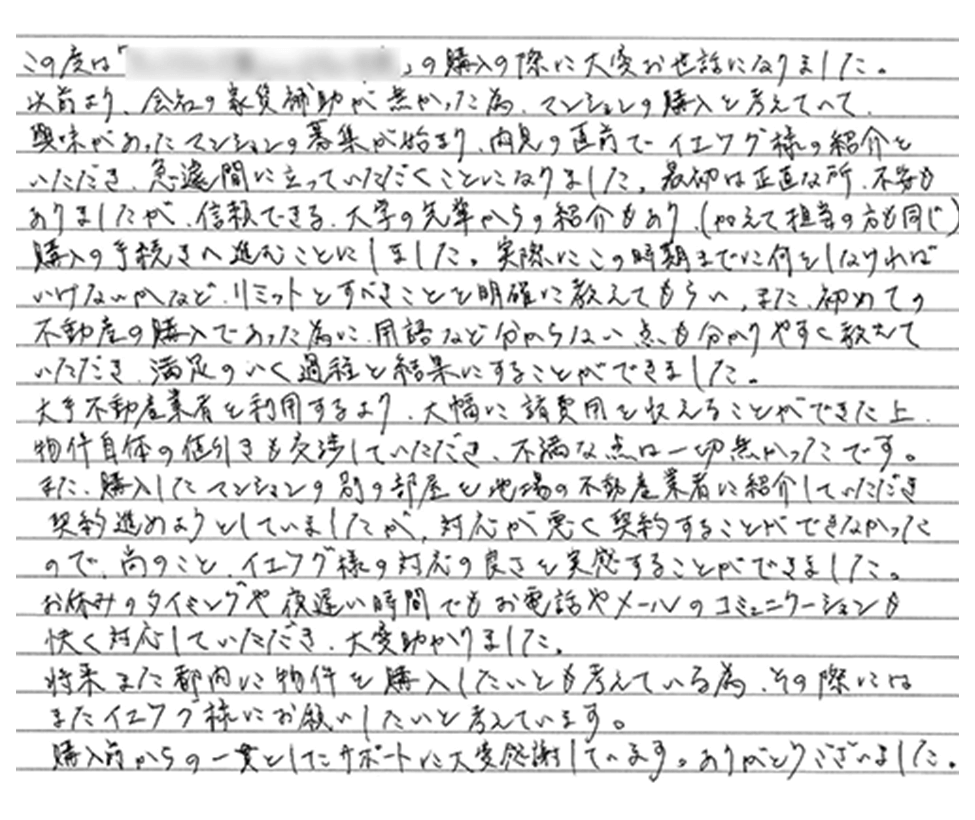 この度は「」の購入の際に大変お世話になりました。
以前より、会社の家賃補助が無かった為、マンションの購入を考えていて、
興味があったマンションの募集が始まり、内見の直前で、イエツグ様の紹介を
いただき、急遽間に立っていただくことになりました。最初は正直な所、不安も
ありましたが、信頼できる、大学の先輩からの紹介もあり、(加えて担当の方も同じ)
購入の手続きへ進むことにしました。実際にこの時期までに何をしなければ
いけないかなど、リミットとすべきことを明確に教えてもらい、また、初めての
不動産の購入であった為に、用語など分からない点も分かりやすく教えて
いただき、満足のいく過程と結果にすることができました。
大手不動産業者を利用するより、大幅に諸費用を抑えることができた上、
物件自体の値引きも交渉していただき、不満な点は一切無かったです。
また、購入したマンションの別の部屋を地場の不動産業者に紹介していただき
契約進めようとしていましたが、対応が悪く契約することができなかった
ので、尚のこと、イエツグ様の対応の良さを実感することができました。
お休みのタイミングや夜遅い時間でもお電話やメールのコミュニケーションも
快く対応していただき、大変助かりました。
将来また都内に物件を購入したいとも考えている為、その際には
またイエツグ様にお願いしたいと考えています。
購入前からの一貫としたサポートに大変感謝しています。ありがとうございました。